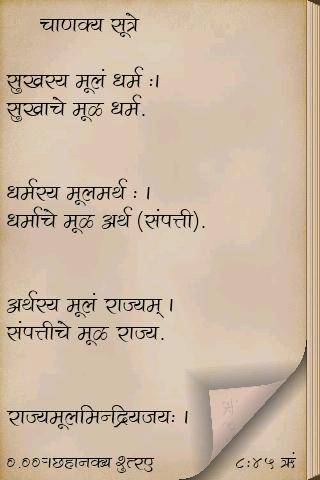 चाणक्य सूत्रे
सुखस्य मूलं धर्म ः।
सुखाचे मूळ धर्म.
धर्मस्य मूलमर्थ ः ।
धर्माचे मूळ अर्थ (संपत्ती).
अर्थस्य मूलं राज्यम् ।
संपत्तीचे मूळ राज्य.
राज्यमूलमिन्द्रियजयः ।
८:४५